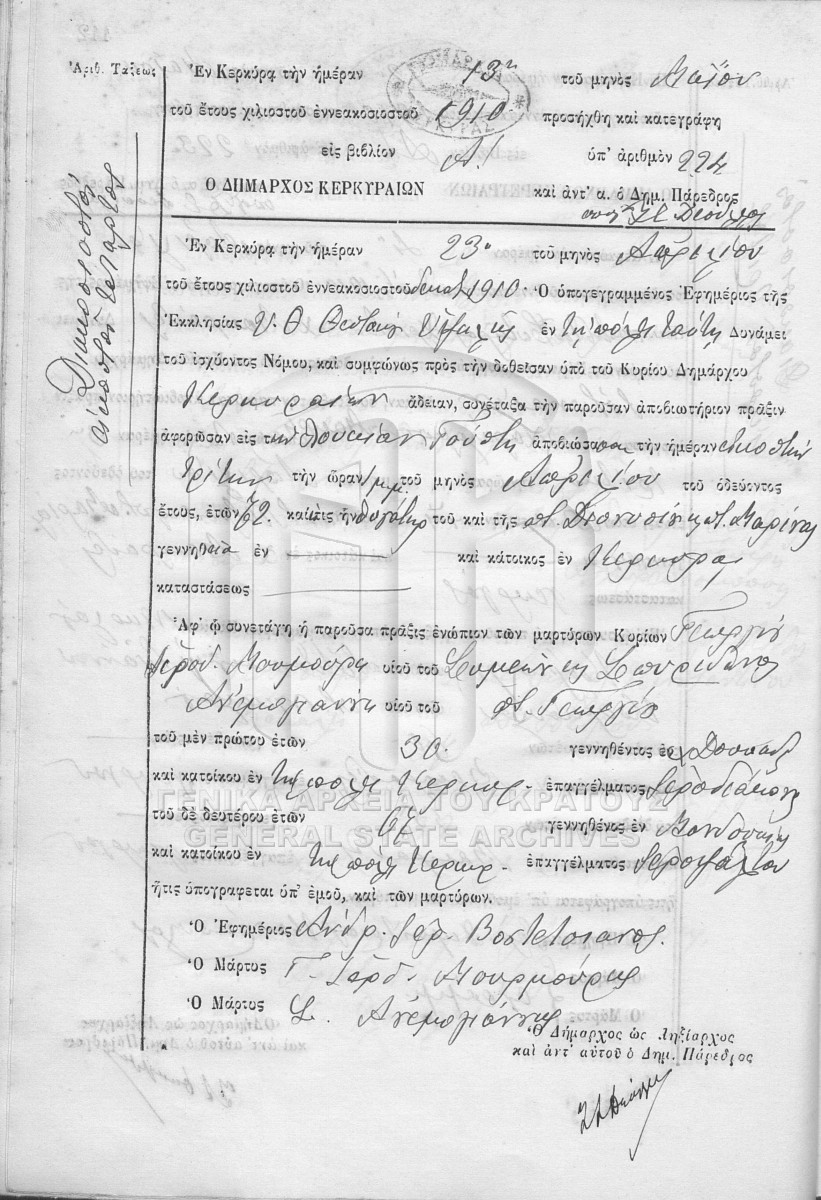 Ἀριθ. Τάξεως
Διακοσιοστὸν
εἰκοστὸν τέταρτον
Ἐν Κερκύρᾳ τὴν ἡμέραν 13η τοῦ μηνὸς Μαΐου
τοῦ ἔτους χιλιοστοῦ ἐννεακοσιοστοῦ 1910 προσήχθη καὶ κατεγράφη
εἰς βιβλίον Α! ὑπ' ἀριθμὸν 224
Ο ΔΗΜΑΡΧΟΣ ΚΕΡΚΥΡΑΙΩΝ καὶ ἀντ' α. ὁ Δημ. Πάρεδρος
Ἐν Κερκύρᾳ τὴν ἡμέραν 23η τοῦ μηνὸς Ἀπριλίου
τοῦ ἔτους χιλιοστοῦ ἐννεακοσιοστοῦ 1910. Ὁ ὑπογεγραμμένος Ἐφημέριος τῆς
Ἐκκλησίας Υ. Θ. ἐν τῇ πόλει ταύτῃ Δυνάμει
τοῦ ἰσχύοντος Νόμου, καὶ συμφώνως πρὸς τὴν δοθεῖσαν ὑπὸ τοῦ Κυρίου Δημάρχου
Κερκυραίων ἄδειαν, συνέταξα τὴν παροῦσαν ἀποβιωτήριον πρᾶξιν
ἀφορῶσαν εἰς τὴν Λουκίαν ἀποβιώσασαν τὴν ἡμέραν εἰκοστὴν
τρίτην τὴν ὥραν μ.μ. τοῦ μηνὸς Ἀπριλίου τοῦ ὁδεύοντος
ἔτους, ἐτῶν 72 θυγάτηρ τοῦ καὶ τῆς Μαρίνας
γεννηθεῖσα ἐν καὶ κάτοικος ἐν Κέρκυρα
καταστάσεως
Ἀφ' ᾧ συνετάγη ἡ παροῦσα πρᾶξις ἐνώπιον τῶν μαρτύρων Κυρίων Γεωργίου
Ἱεροδ. Μουρμούρη υἱοῦ τοῦ Συμεὼν κ Σπυρίδωνος
Ἀνεμογιάννη υἱοῦ τοῦ Γεωργίου
τοῦ μὲν πρώτου ἐτῶν 30. γεννηθέντος ἐν
καὶ κατοίκου ἐν τῇ πόλει Κερκύρ. ἐπαγγέλματος Ἱεροδιακόνου
τοῦ δὲ δευτέρου ἐτῶν 67 γεννηθένος ἐν
καὶ κατοίκου ἐν τῇ πόλει Κερκύρ. ἐπαγγέλματος Ἱεροψάλτου
ἥτις ὑπογράφεται ὑπ' ἐμοῦ, καὶ τῶν μαρτύρων.
Ὁ Ἐφημέριος Ἀνδρ. Ἱερ.
Ὁ Μάρτυς Γ. Ἱεροδ. Μουρμούρης
Ὁ Μάρτυς Σ. Ἀνεμογιάννης
Ὁ Δήμαρχος ὡς Ληξίαρχος
καὶ ἀντ' αὐτοῦ ὁ Δημ. Πάρεδρος
ΓΕΝΙΚΑ ΑΡΧΕΙΑ ΤΟΥ ΚΡΑΤΟΥΣ
GENERAL STATE ARCHIVES